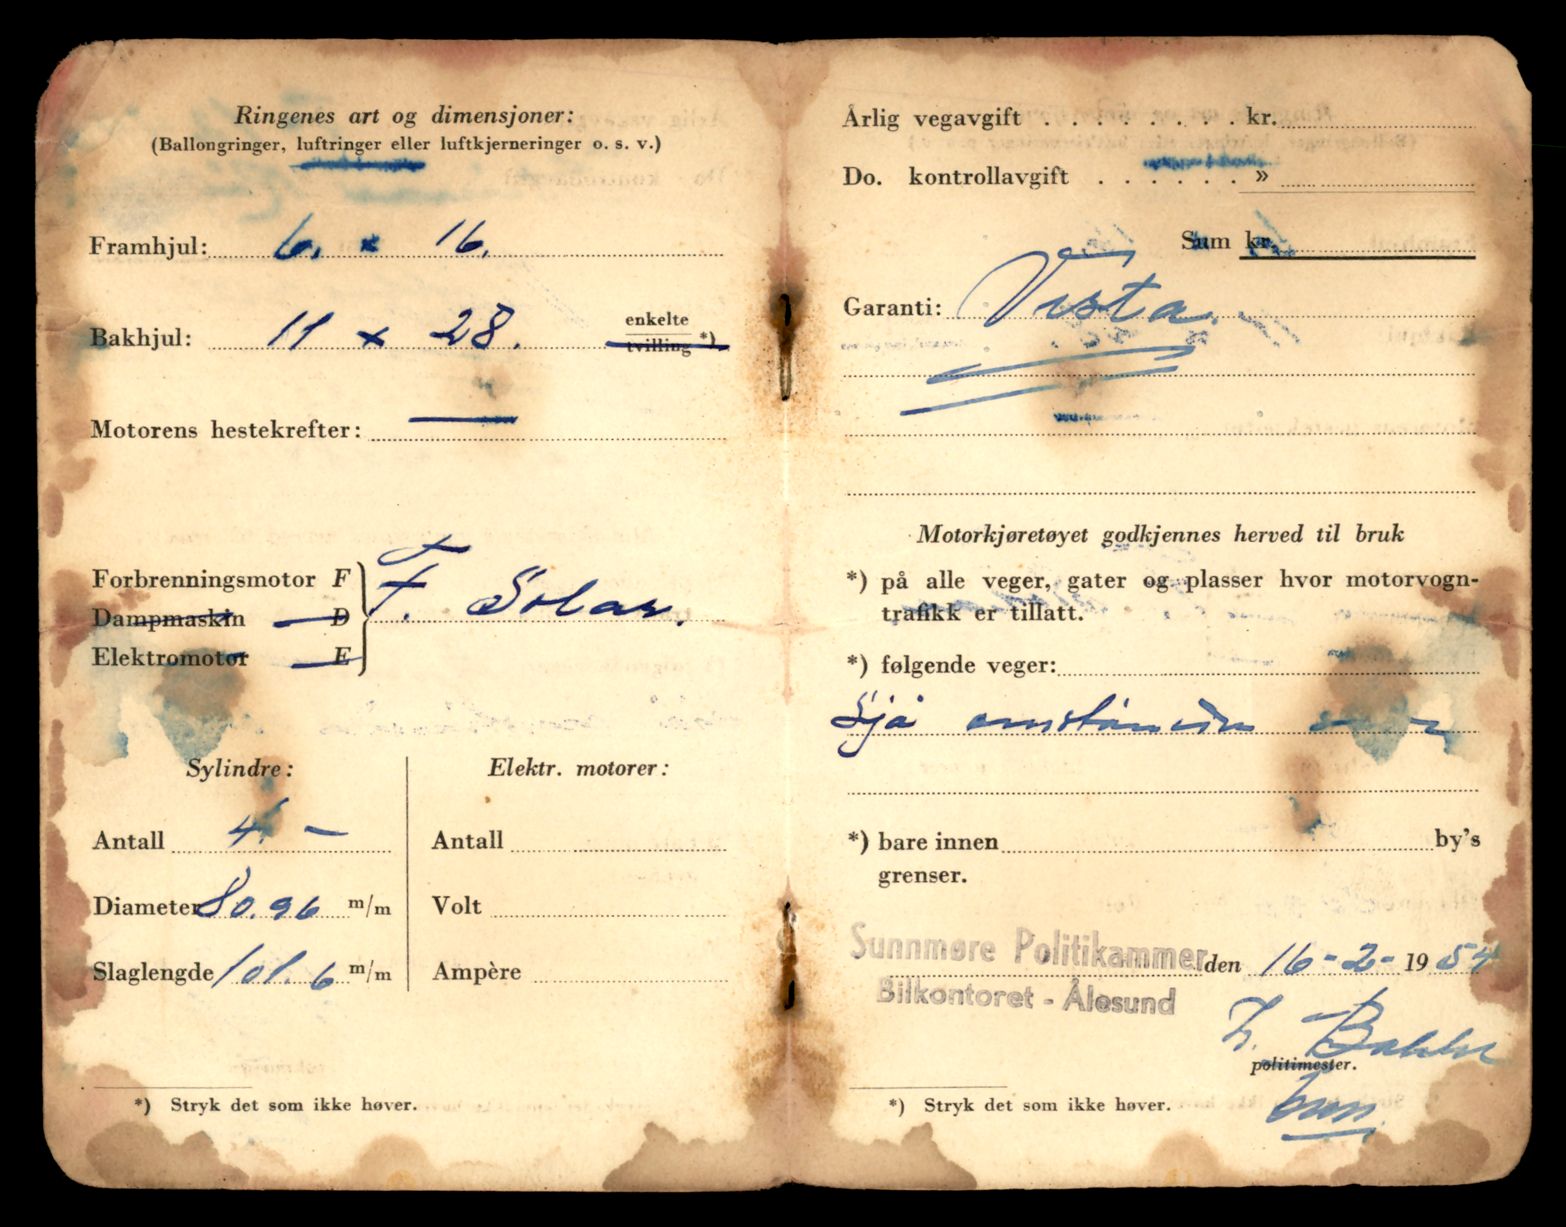 Ringenes art og dimensjoner:
(Ballongringer, luftringer eller luftkjerneringer o. s. v.)
Framhjul: 6. x 16.
Bakhjul: 11 x 28. enkelte
tvilling *)
Motorens hestekrefter: —
Forbrenningsmotor F
Dampmaskin D
Elektromotor E
F. Solar.
Sylindre:
Antall 4. –
Diameter 80.96 m/m
Slaglengde 101.6 m/m
Elektr. motorer:
Antall
Volt
Ampère
*) Stryk det som ikke høver.
Årlig vegavgift . . . . . . . . kr.
Do. kontrollavgift . . . . . . »
Sum kr.
Garanti: Vesta.
Motorkjøretøyet godkjennes herved til bruk
*) på alle veger, gater og plasser hvor motorvogn-
trafikk er tillatt.
*) følgende veger:
Sjå
*) bare innen by's
grenser.
Sunnmøre Politikammer den 16-2-1954
Bilkontoret - Ålesund
politimester.
*) Stryk det som ikke høver.